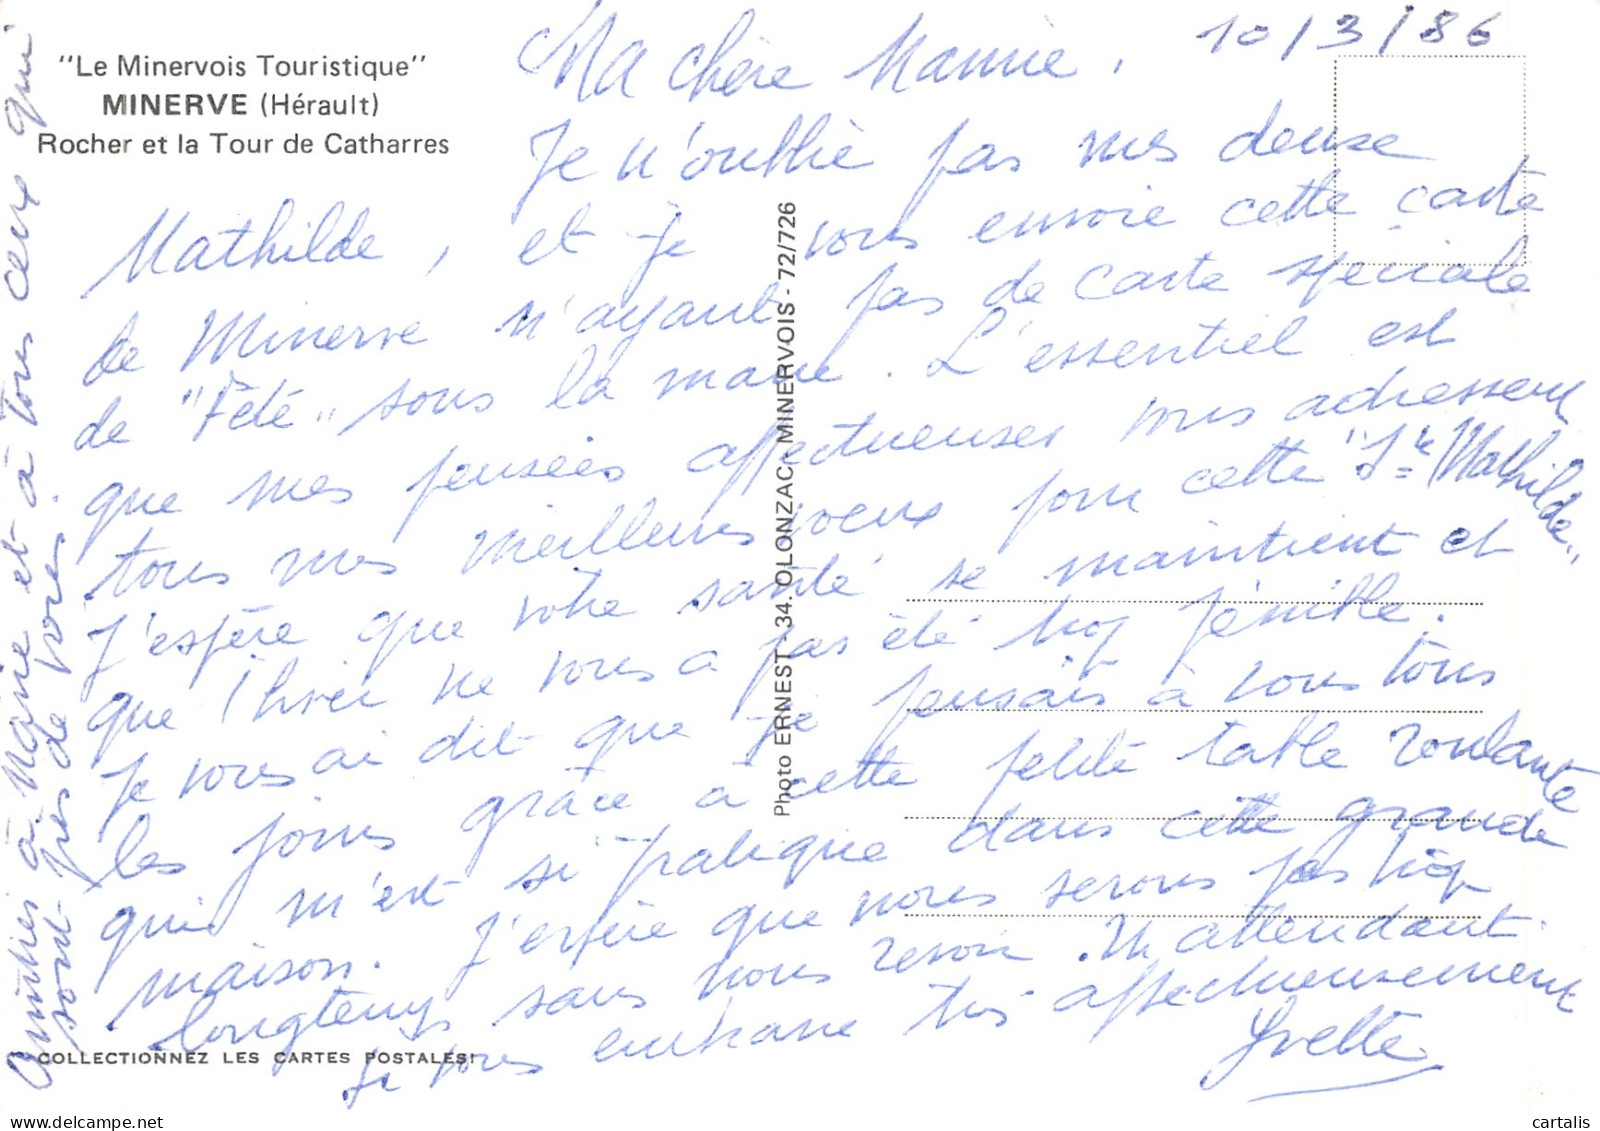 "Le Minervois Touristique"
MINERVE (Hérault)
Rocher et la Tour de Catharres
10/3/86
Ma chère Mamie,
Je n'oublie pas mes deux
Mathilde, et je vous envoie cette carte
de Minerve n'ayant pas de carte spéciale
de "Fête" sous la main. L'essentiel est
que mes pensées affectueuses vous adressent
tous mes meilleurs voeux pour cette "Ste Mathilde"
J'espère que votre santé se maintient et
que l'hiver ne vous a pas été trop pénible.
Je vous ai dit que je pensais à vous tous
les jours grâce à cette petite table roulante
qui m'est si pratique dans cette grande
maison. J'espère que nous serons pas trop
longtemps sans nous revoir. En attendant
je vous embrasse très affectueusement
Yvette
Amitiés à et à tous ceux qui
sont près de vous.
Photo ERNEST - 34. OLONZAC - MINERVOIS - 72/726
COLLECTIONNEZ LES CARTES POSTALES!
delcampe.net
cartalis